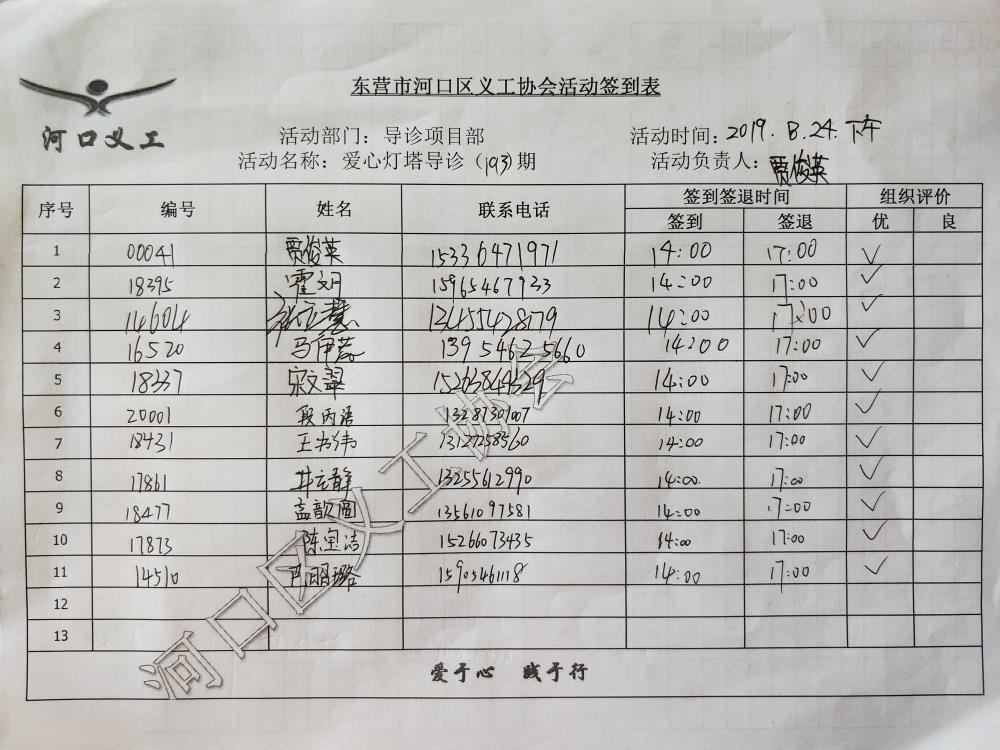 东营市河口区义工协会活动签到表
河口义工
活动部门：导诊项目部 活动时间：2019.8.24.下午
活动名称：爱心灯塔导诊（193）期 活动负责人：贾俊英
序号 编号 姓名 联系电话 签到签退时间 组织评价
签到 签退 优 良
1 00041 贾俊英 15336471971 14:00 17:00 ✓
2 18395 霍文月 15965467933 14:00 17:00 ✓
3 14604 13455428179 14:00 17:00 ✓
4 16520 马伊蕊 13954625660 14:00 17:00 ✓
5 18337 宋文翠 15263849329 14:00 17:00 ✓
6 20001 段丙语 13287301007 14:00 17:00 ✓
7 18431 王书伟 13127258560 14:00 17:00 ✓
8 17861 13255612990 14:00 17:00 ✓
9 18477 孟歆圆 13561097581 14:00 17:00 ✓
10 17873 陈宝洁 15266073435 14:00 17:00 ✓
11 14510 15905461118 14:00 17:00 ✓
12
13
爱于心 践于行
河口区义工协会